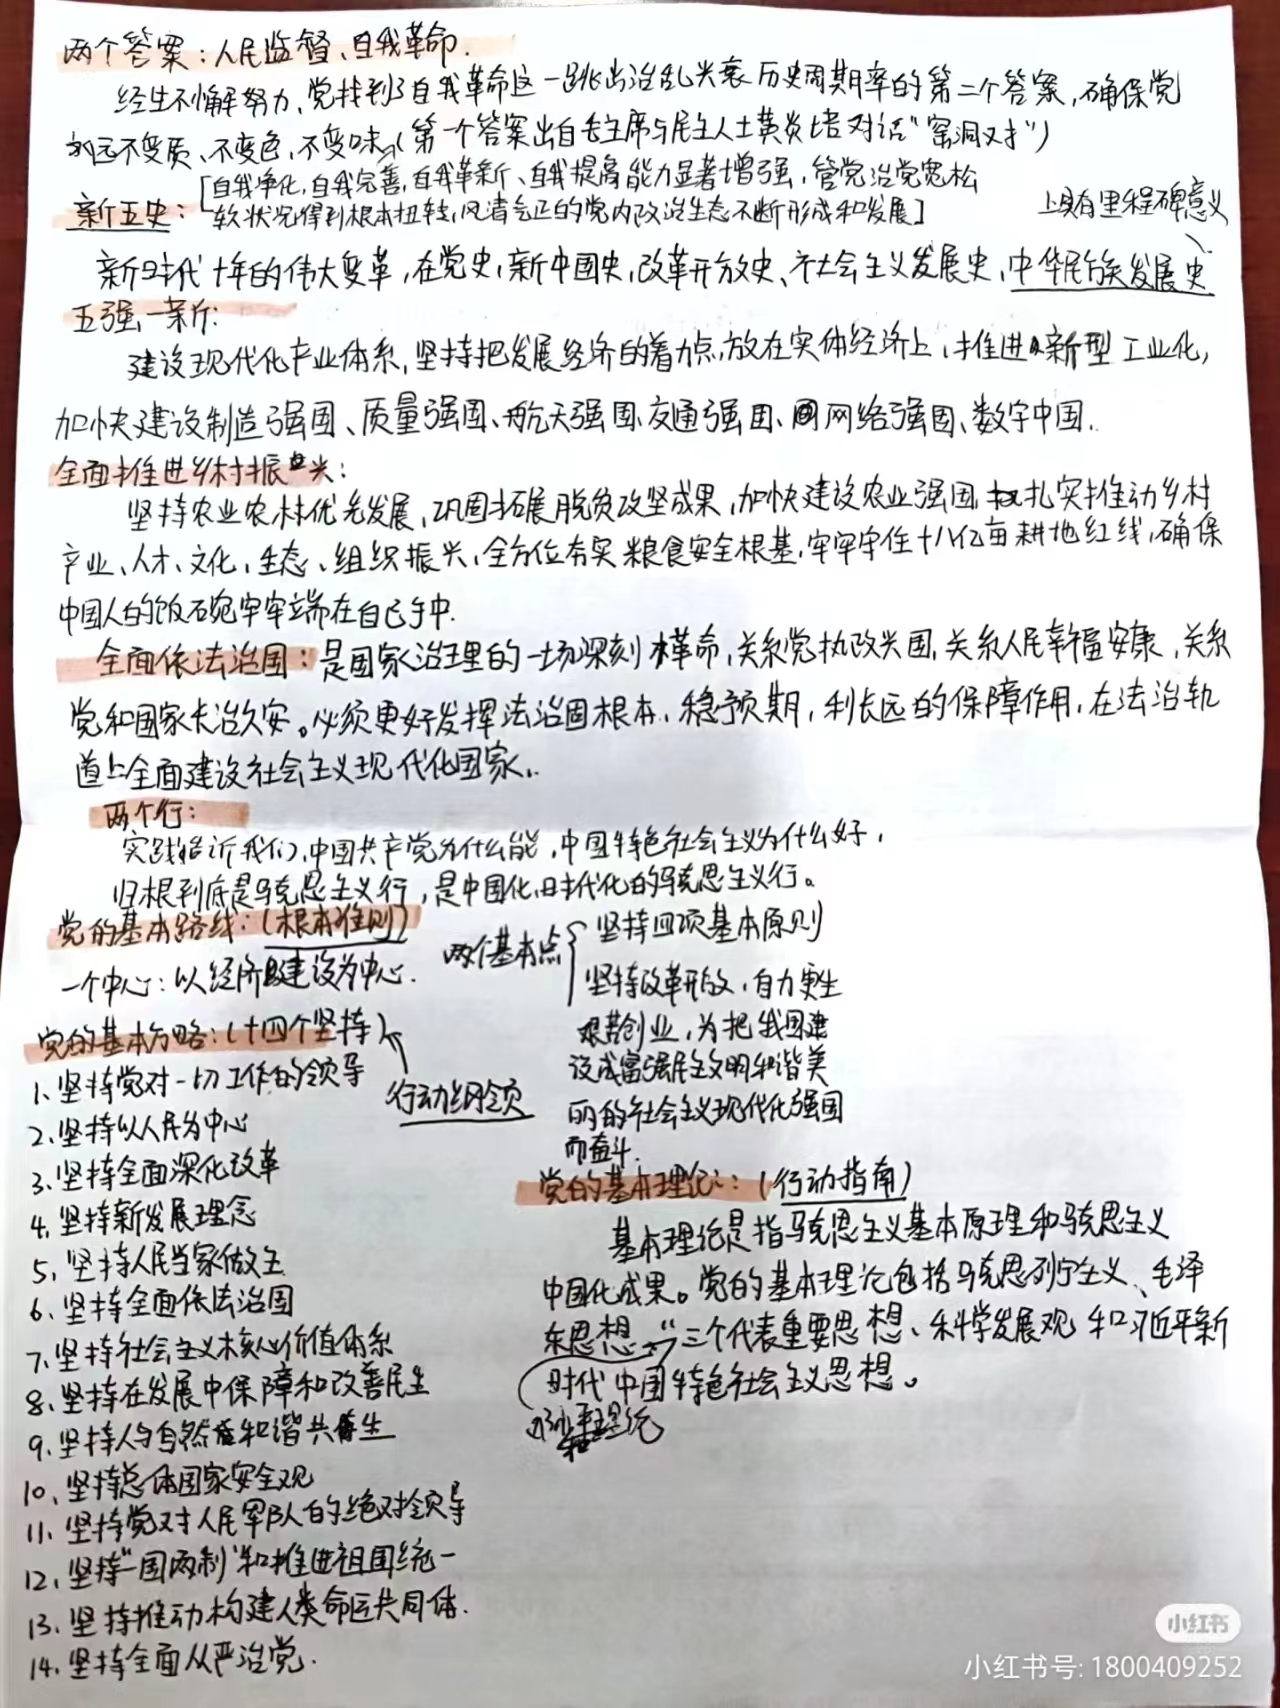 两个答案：人民监督、自我革命.
经过不懈努力,党找到了自我革命这一跳出治乱兴衰历史周期率的第二个答案,确保党
永远不变质、不变色、不变味(第一个答案出自毛主席与民主人士黄炎培对话"窑洞对")
[自我净化,自我完善,自我革新、自我提高能力显著增强,管党治党宽松
软状况得到根本扭转,风清气正的党内政治生态不断形成和发展]
新五史：
上具有里程碑意义
新时代十年的伟大变革,在党史,新中国史,改革开放史、社会主义发展史,中华民族发展史
五强一新:
建设现代化产业体系,坚持把发展经济的着力点,放在实体经济上,推进新型工业化,
加快建设制造强国、质量强国、航天强国、交通强国、网络强国、数字中国.
全面推进乡村振兴:
坚持农业农村优先发展,巩固拓展脱贫攻坚成果,加快建设农业强国,扎实推动乡村
产业、人才、文化、生态、组织振兴,全方位夯实粮食安全根基,牢牢守住十八亿亩耕地红线,确保
中国人的饭碗牢牢端在自己手中.
全面依法治国：是国家治理的一场深刻革命,关系党执政兴国,关系人民幸福安康,关系
党和国家长治久安。必须更好发挥法治固根本、稳预期,利长远的保障作用,在法治轨
道上全面建设社会主义现代化国家.
两个行：
实践告诉我们,中国共产党为什么能,中国特色社会主义为什么好,
归根到底是马克思主义行,是中国化时代化的马克思主义行。
党的基本路线:(根本准则)
一个中心：以经济建设为中心.
两个基本点
坚持四项基本原则
坚持改革开放,自力更生
艰苦创业,为把我国建
设成富强民主文明和谐美
丽的社会主义现代化强国
而奋斗.
党的基本方略:(十四个坚持)
行动纲领
1、坚持党对一切工作的领导
2、坚持以人民为中心
3、坚持全面深化改革
4、坚持新发展理念
5、坚持人民当家做主
6、坚持全面依法治国
7、坚持社会主义核心价值体系
8、坚持在发展中保障和改善民生
9、坚持人与自然和谐共生
10、坚持总体国家安全观
11、坚持党对人民军队的绝对领导
12、坚持"一国两制"和推进祖国统一
13、坚持推动构建人类命运共同体.
14、坚持全面从严治党.
党的基本理论：(行动指南)
基本理论是指马克思主义基本原理和马克思主义
中国化成果。党的基本理论包括马克思列宁主义、毛泽
东思想、"三个代表重要思想、科学发展观和习近平新
时代中国特色社会主义思想。
邓小平理论
小红书
小红书号: 1800409252